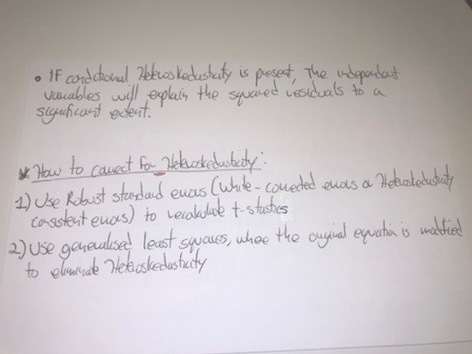 • If conditional Heteroskedasticity is present, The independent
variables will explain the squared residuals to a
significant extent.
* How to correct For Heteroskedasticity:
1) Use Robust standard errors (White-corrected errors or Heteroskedasticity
consistent errors) to recalculate t-stastics
2) Use generalised least squares, where the original equation is modified
to eliminate Heteroskedasticity